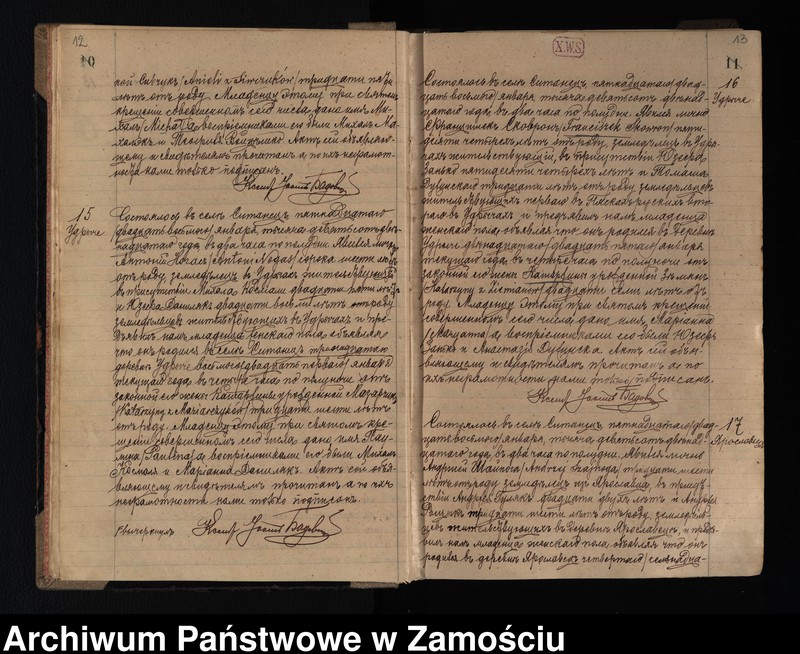 12
10
кой Сивчукъ /Anieli z Siwczuków/ тридцати
лѣтъ отъ роду. Младенцу этому при святомъ
крещеніи совершенномъ сего числа дано имя Ми-
халъ /Michał/ а воспріемниками его были Михалъ
и Акт сей объявляю-
щему и свидѣтелямъ прочитанъ а по ихъ неграмот-
ности нами только подписанъ.
15
Удрыче
Состоялось въ селѣ Ситанецъ пятнадцатаго
/двадцать восьмого/ января, тысяча девятьсотъ двѣ-
надцатаго года, въ два часа по полудни. Явился лично
Антоній Ногасъ /Antoni Nogas/ сорока шести лѣтъ
отъ роду, земледѣлецъ въ Удрычахъ жительствующій
въ присутствіи двадцати пяти лѣтъ
и Юзефа Данилюкъ двадцати восьми лѣтъ отъ роду
земледѣльцевъ жительствующихъ въ Удрычахъ и пре-
дъявилъ намъ младенца женскаго пола объявляя
что онъ родился въ селѣ Ситанецъ
деревнѣ Удрыче восьмого /двадцать перваго/ января
текущаго года въ четыре часа по полуночи отъ
законной его жены Катаржины урожденной Мазярчукъ
/Katarzyny z Maziarczyków/ тридцати шести лѣтъ
отъ роду. Младенцу этому при святомъ кре-
щеніи совершенномъ сего числа дано имя Пау-
лина /Paulina/ а воспріемниками его были Михалъ
и Маріанна Данилюкъ. Актъ сей объя-
вляющему и свидѣтелямъ прочитанъ а по ихъ
неграмотности нами только подписанъ.
13
11
X.W.S.
16
Удрыче
Состоялось въ селѣ Ситанецъ пятнадцатаго /двад-
цать восьмого/ января, тысяча девятьсотъ двѣнад-
цатаго года, въ два часа по полудни. Явился лично
Францишекъ Сковронъ /Franciszek Skowron/ пяти-
десяти четырехъ лѣтъ отъ роду, земледѣлецъ въ Удры-
чахъ жительствующій, въ присутствіи Юзефа
пятидесяти четырехъ лѣтъ и Томаша
тридцати лѣтъ отъ роду земледѣльцевъ
жительствующихъ перваго въ вто-
рого въ Удрычахъ и предъявилъ намъ младенца
женскаго пола объявляя что онъ родился въ деревнѣ
Удрыче двѣнадцатаго /двадцать пятаго/ января
текущаго года въ четыре часа по полуночи отъ
законной его жены Катаржины урожденной
/Katarzyny z двадцати семи лѣтъ отъ
роду. Младенцу этому при святомъ крещеніи
совершенномъ сего числа дано имя Маріанна
/Maryanna/ а воспріемниками его были Юзефъ
и Анастазія Актъ сей объя-
вляющему и свидѣтелямъ прочитанъ а по
ихъ неграмотности нами только подписанъ.
17
Ярославецъ
Состоялось въ селѣ Ситанецъ пятнадцатаго /двад-
цать восьмого/ января, тысяча девятьсотъ двѣнад-
цатаго года, въ два часа по полудни. Явился лично
Андржей /Andrzej тридцати шести
лѣтъ отъ роду земледѣлецъ изъ Ярославца, въ присут-
ствіи Андржея двадцати двухъ лѣтъ и Андржея
тридцати шести лѣтъ отъ роду, земледѣль-
цевъ жительствующихъ въ деревнѣ Ярославецъ, и предъя-
вилъ намъ младенца женскаго пола объявляя что онъ
родился въ деревнѣ Ярославецъ четвертаго /семнадца-
Archiwum Państwowe w Zamościu